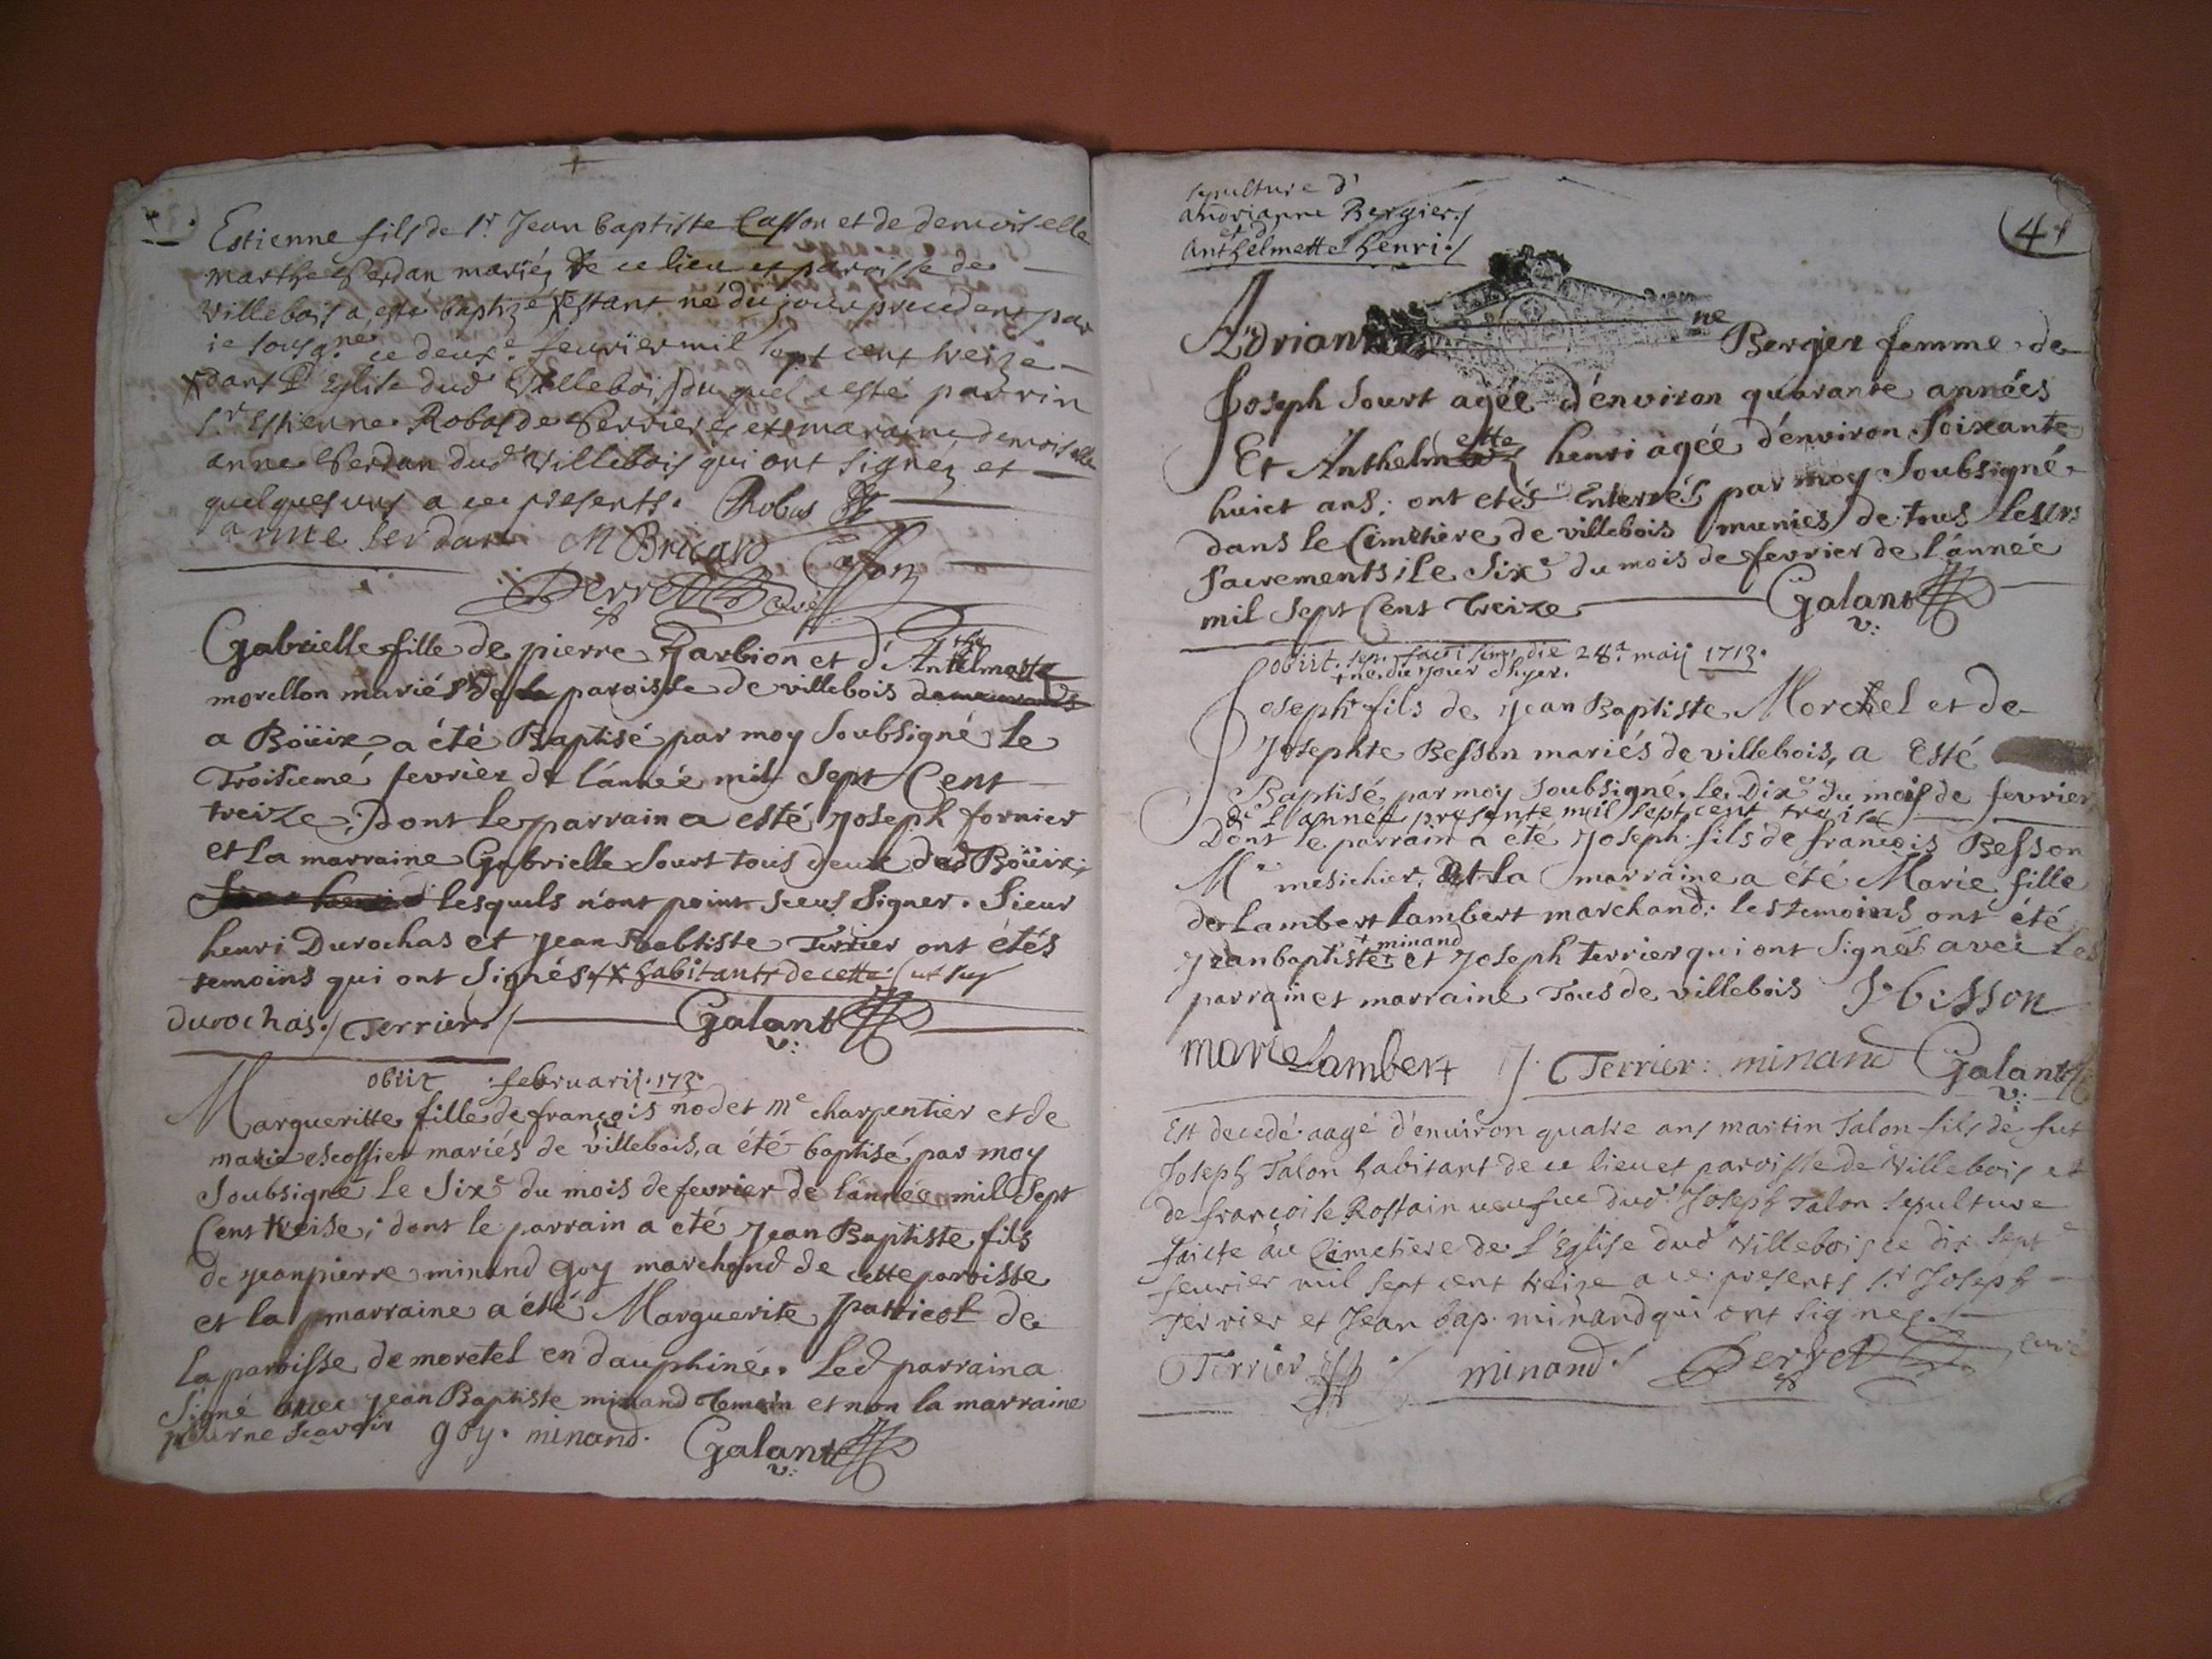 Estienne fils de Sr Jean baptiste Casson et de demoiselle
marthe Serdan mariéz de ce lieu et paroisse de
Villebois a esté baptizé estant né du jour precedent par
ie sousgné ce deuxe feurier mil sept cent treize
dans L'Eglise dud Villebois duquel a esté parrin
Sr Estienne Robas de Serrieres et maraine demoiselle
anne Serdan dud Villebois qui ont signez et
quelques uns a ce presents. Robas
anne Serdan M Bricard Casson
Perret curé
Gabrielle fille de pierre Jarbion et d'Anthelmette
morellon mariés de la paroisse de villebois demeurants
a Boüix a été Baptisé par moy Soubsigné Le
Troisiemé fevrier de l'année mil Sept Cent
treize; dont le parrain a esté Joseph fornier
et La marraine Gabrielle Sourt tous deux dud Boüix;
lesquels n'ont point sceus Signer. Sieur
henri Durochas et Jean Babtiste Terrier ont étés
temoins qui ont Signés x habitants de cette
durochas./ Terrier/ Galant v:
obiit februarii. 1713.
Margueritte fille de françois nodet me charpentier et de
marie escoffier mariés de villebois, a été baptisé par moy
Soubsigné Le Sixe du mois de fevrier de l'année mil Sept
Cent treise; dont le parrain a eté Jean Baptiste fils
de jeanpierre minand goy marchand de cette paroisse
et la marraine a été Marguerite Patricot de
La paroisse de moretel en dauphiné. Led parrain a
Signé avec jean Baptiste minand temoin et non la marraine
pour ne scavoir goy. minand. Galant v:
sepulture d'
andrianne Bergier./
et d'
Anthelmette henri./
4
Adrianne Bergier femme de
Joseph Sourt agée d'environ quarante années
Et Anthelmette henri agée d'environ Soixante
huict ans; ont etés Enterrés par moy Soubsigné
dans le Cimetiere de villebois munies de tous leurs
Sacrements; Le Sixe du mois de fevrier de l'année
mil Sept Cent Treize Galant v:
obiit. die 28a maij 1713.
+ né du jour d'hyer.
Joseph fils de Jean Baptiste Morel et de
Josephte Besson mariés de villebois, a Esté
Baptisé par moy Soubsigné Le Dixe du mois de fevrier
de L'année presente mil sept cent treise
Dont le parrain a eté Joseph fils de francois Besson
Me et La marraine a été Marie fille
de Lambert Lambert marchand; les temoins ont été
+ minand
Jeanbaptiste et Joseph terrier qui ont Signés avec Les
parrain et marraine Tous de villebois J. besson
marie Lambert J. Terrier: minand Galant v:
Est decedé aagé d'enuiron quatre ans martin Talon fils de fut
Joseph Talon habitant de ce lieu et paroisse de Villebois et
de francoise Rostain ueufue dud Joseph Talon sepulture
faicte au Cimetiere de L'Eglise dud Villebois ce dix septe
feurier mil sept cent treize a ce presents Sr Joseph
Terrier et Jean bap. minand qui ont signez./
Terrier minand./ Perret curé